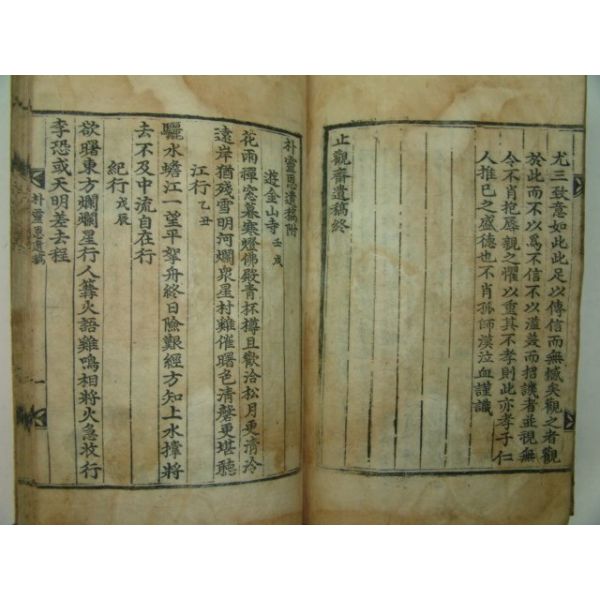 尤三致意如此此足以傳信而無憾矣觀之者觀
於此而不以爲不信不以濫差而招譏者並視無
令不肖抱辱親之懼以重其不孝則此亦孝子仁
人推己之盛德也不肖孤師漢泣血謹識
止觀齋遺稿終
朴靈恩遺稿附
遊金山寺 壬戌
花雨禪窓暮寒燈佛殿靑杯樽且歡洽松月更淸泠
遠岸猶殘雪明河爛衆星村雞催曙色淸磬更堪聽
江行 乙丑
驪水蟾江一望平拏舟終日險艱經方知上水撑將
去不及中流自在行
紀行 戊辰
欲曙東方爛爛星行人篝火語雞鳴相將火急收行
李恐或天明差去程
朴靈恩遺稿
一